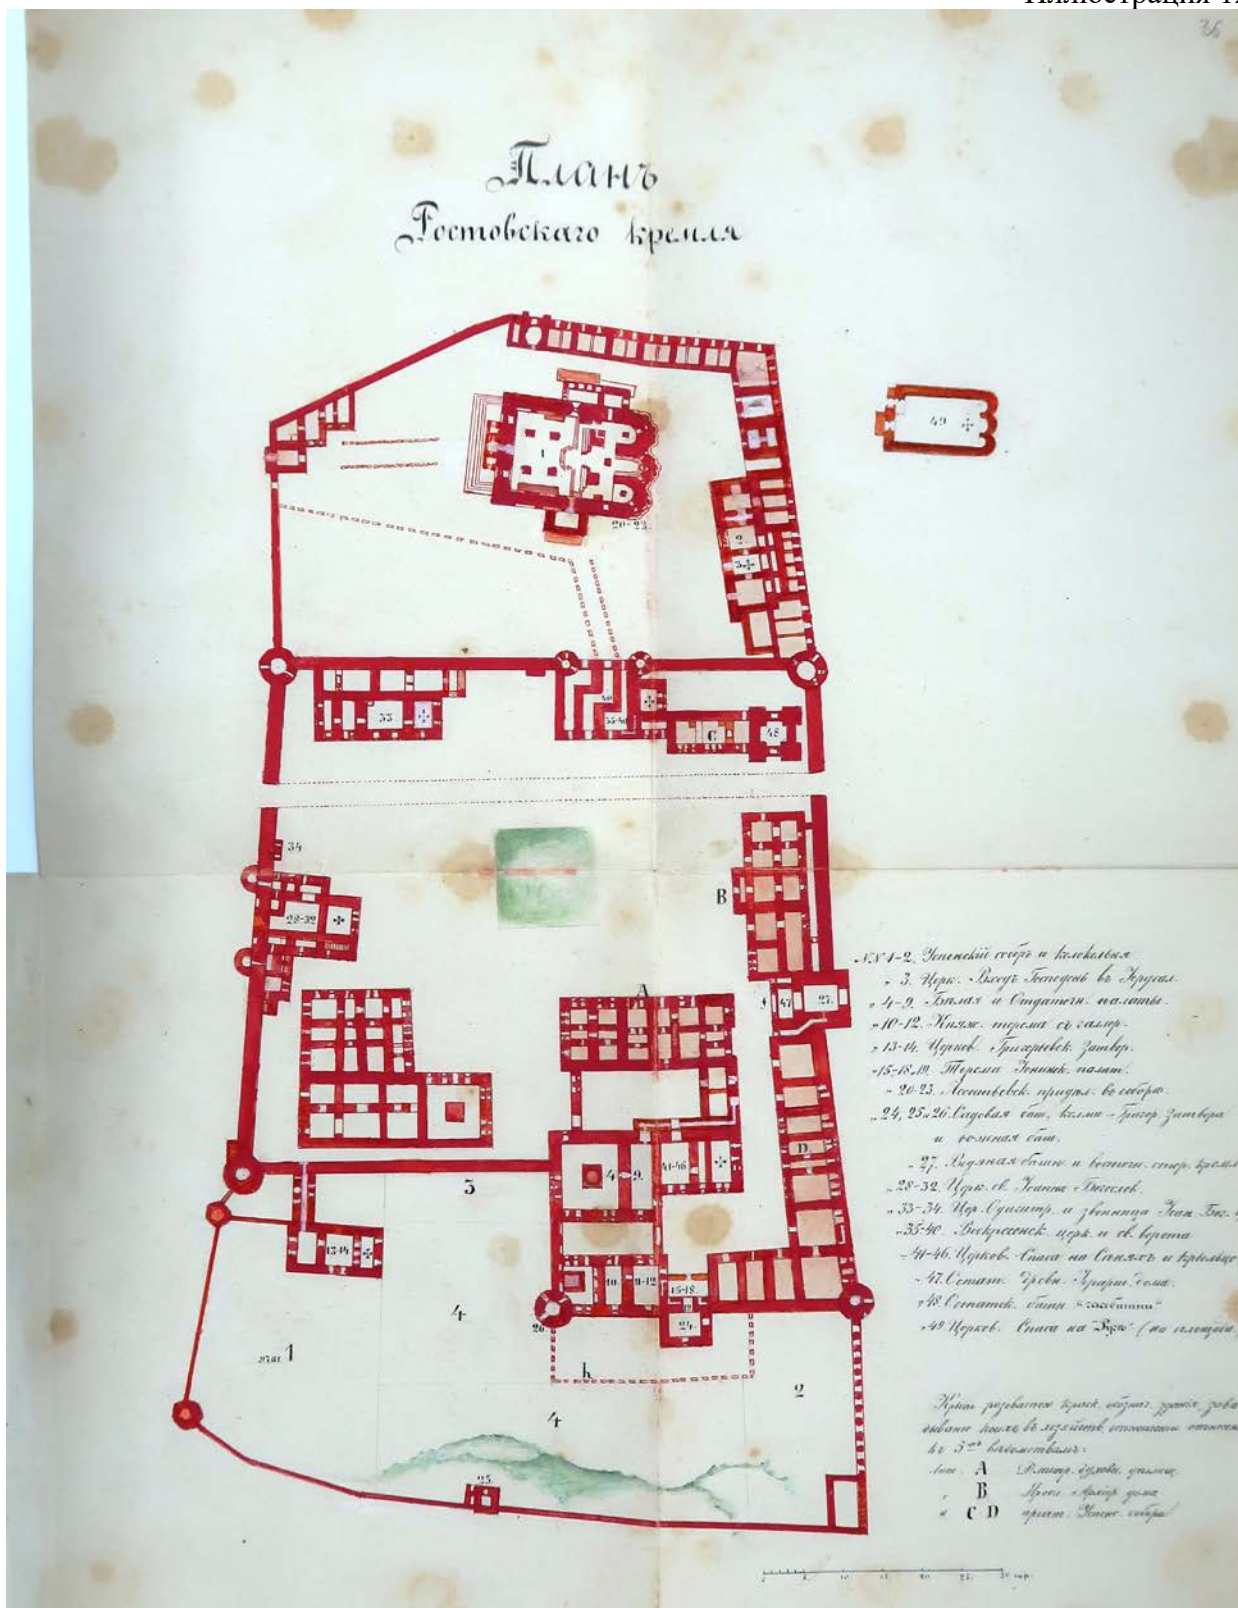 Иллюстрация
Планъ
Ростовскаго кремля
49
1
20-23.
2.
3.
33.
35-40
C
48
34
28-32
B
A
47
27.
D
3
4
9.
41-46.
13-14
10.
11-12
15-18.
19
24.
26
4
h
1
2
4
25.
№№ 1-2. Успенскій соборъ и колокольня
" 3. Церк. Входъ Господень въ Іерусал.
" 4-9. Бѣлая и Отдаточн. палаты.
" 10-12. Княж. терема съ галер.
" 13-14. Церков. Григорьевск. Затвор.
" 15-18, 19. Терема Іонинск. палат.
" 20-23. Леонтьевск. придѣл. въ соборѣ.
" 24, 25 и 26. Садовая баш., келли Григор. Затвора
и башн.
" 27. Водяная башн. и восточн. стор. кремля
" 28-32. Церк. св. Іоанна Богослов.
" 33-34. Цер. Одигитр. и звонница Іоан. Бог.
" 35-40. Воскресенск. церк. и св. ворота
" 41-46. Церков. Спаса на Сѣняхъ и крыльцо
" 47. Іерарш. дома.
" 48. башн.
" 49. Церков. Спаса на (на площади
краск. обознач. зданія,
въ хозяйств. отношеніи
къ 3-мъ вѣдомствамъ:
Лит. A Димитр. духовн. училищ.
" B дома
" C D причт. Успенс. собора
5 10 15 20 25 30 саж.